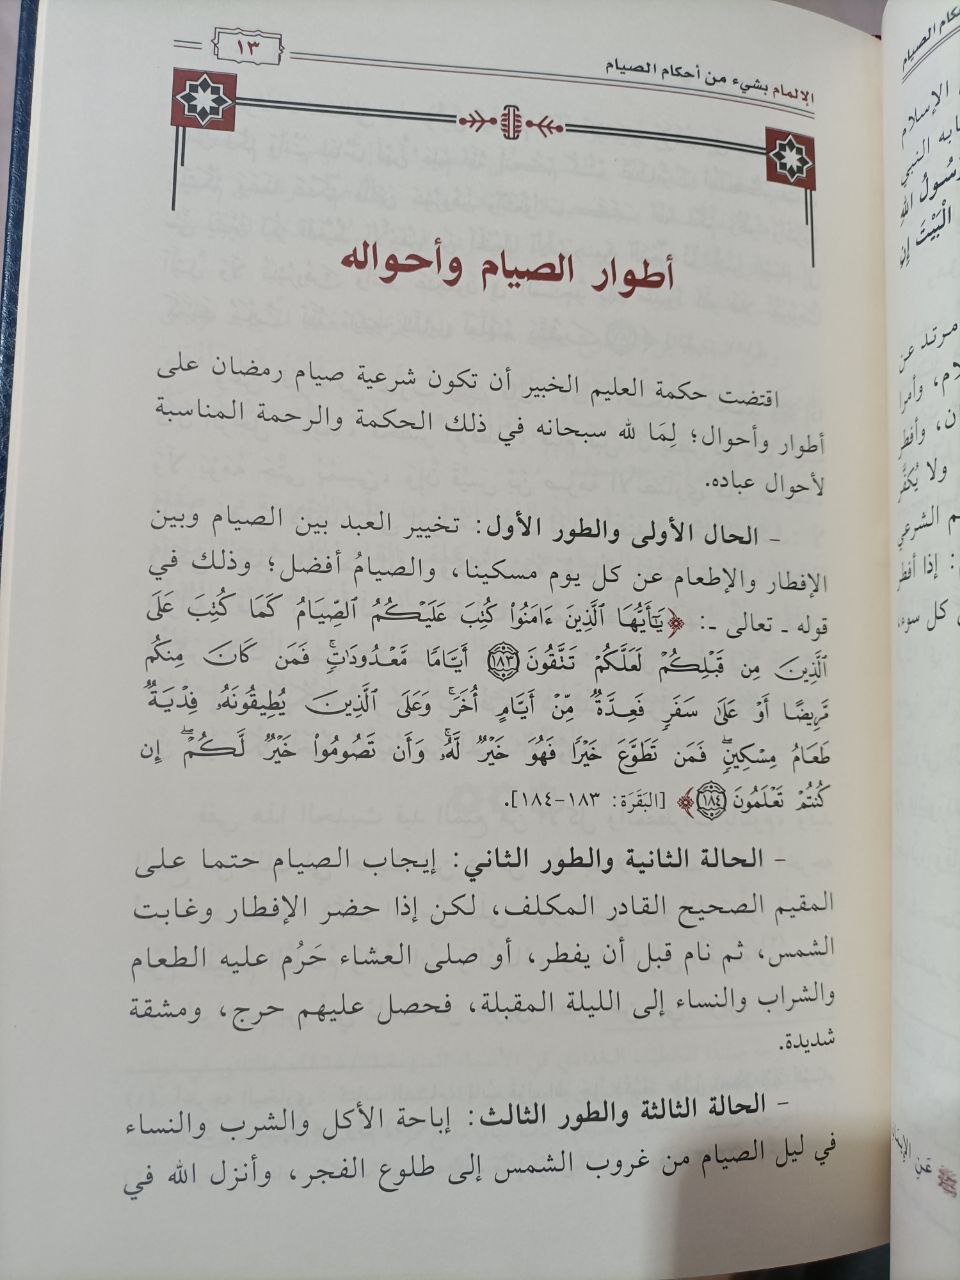 الإلمام بشيء من أحكام الصيام
١٣
أطوار الصيام وأحواله
اقتضت حكمة العليم الخبير أن تكون شرعية صيام رمضان على
أطوار وأحوال؛ لِمَا لله سبحانه في ذلك الحكمة والرحمة المناسبة
لأحوال عباده.
- الحال الأولى والطور الأول: تخيير العبد بين الصيام وبين
الإفطار والإطعام عن كل يوم مسكينا، والصيامُ أفضل؛ وذلك في
قوله ـ تعالى ـ: ﴿يَٰٓأَيُّهَا ٱلَّذِينَ ءَامَنُواْ كُتِبَ عَلَيۡكُمُ ٱلصِّيَامُ كَمَا كُتِبَ عَلَى
ٱلَّذِينَ مِن قَبۡلِكُمۡ لَعَلَّكُمۡ تَتَّقُونَ ١٨٣ أَيَّامٗا مَّعۡدُودَٰتٖۚ فَمَن كَانَ مِنكُم
مَّرِيضًا أَوۡ عَلَىٰ سَفَرٖ فَعِدَّةٞ مِّنۡ أَيَّامٍ أُخَرَۚ وَعَلَى ٱلَّذِينَ يُطِيقُونَهُۥ فِدۡيَةٞ
طَعَامُ مِسۡكِينٖۖ فَمَن تَطَوَّعَ خَيۡرٗا فَهُوَ خَيۡرٞ لَّهُۥۚ وَأَن تَصُومُواْ خَيۡرٞ لَّكُمۡۖ إِن
كُنتُمۡ تَعۡلَمُونَ ١٨٤﴾ [البَقَرَة: ١٨٣-١٨٤].
- الحالة الثانية والطور الثاني: إيجاب الصيام حتما على
المقيم الصحيح القادر المكلف، لكن إذا حضر الإفطار وغابت
الشمس، ثم نام قبل أن يفطر، أو صلى العشاء حَرُم عليه الطعام
والشراب والنساء إلى الليلة المقبلة، فحصل عليهم حرج، ومشقة
شديدة.
- الحالة الثالثة والطور الثالث: إباحة الأكل والشرب والنساء
في ليل الصيام من غروب الشمس إلى طلوع الفجر، وأنزل الله في